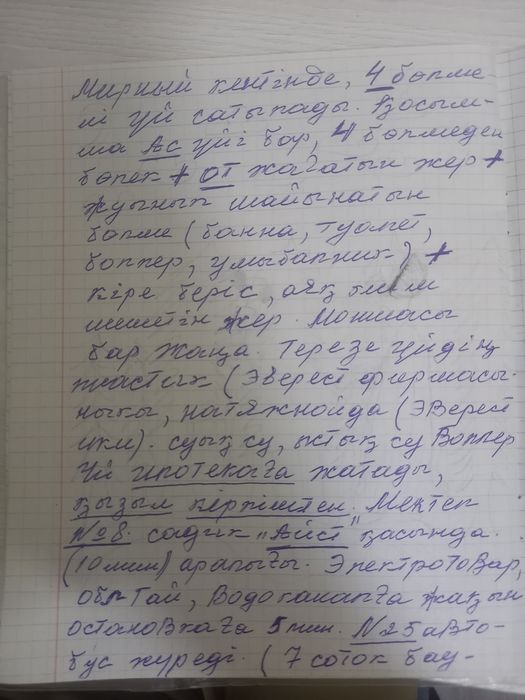 Мирный кентінде, 4 бөлме-
лі үй сатылады. Қосым-
ша Ас үйі бар, 4 бөлмеден
бөлек + от жағатын жер +
жуынып шайынатын
бөлме (ванна, туалет,
боллер, умывалник) +
кіре беріс, аяқ киім
шешетін жер. Моншасы
бар жаңа. Терезе үйдің
пластик (Эверест фирмасы-
ныкы, натяжнойда (Эверест
ики). суық су, ыстық су Воллер
Үй ипотекаға жатады,
қызыл кірпіштен. Мектеп
№8. садик "Аист" қасында.
(10 мин) аралығы. Электротовар,
Обл Гай, Водоканалға жақын
остановкаға 5 мин. №25 авто-
бус жүреді. (7 соток бау-